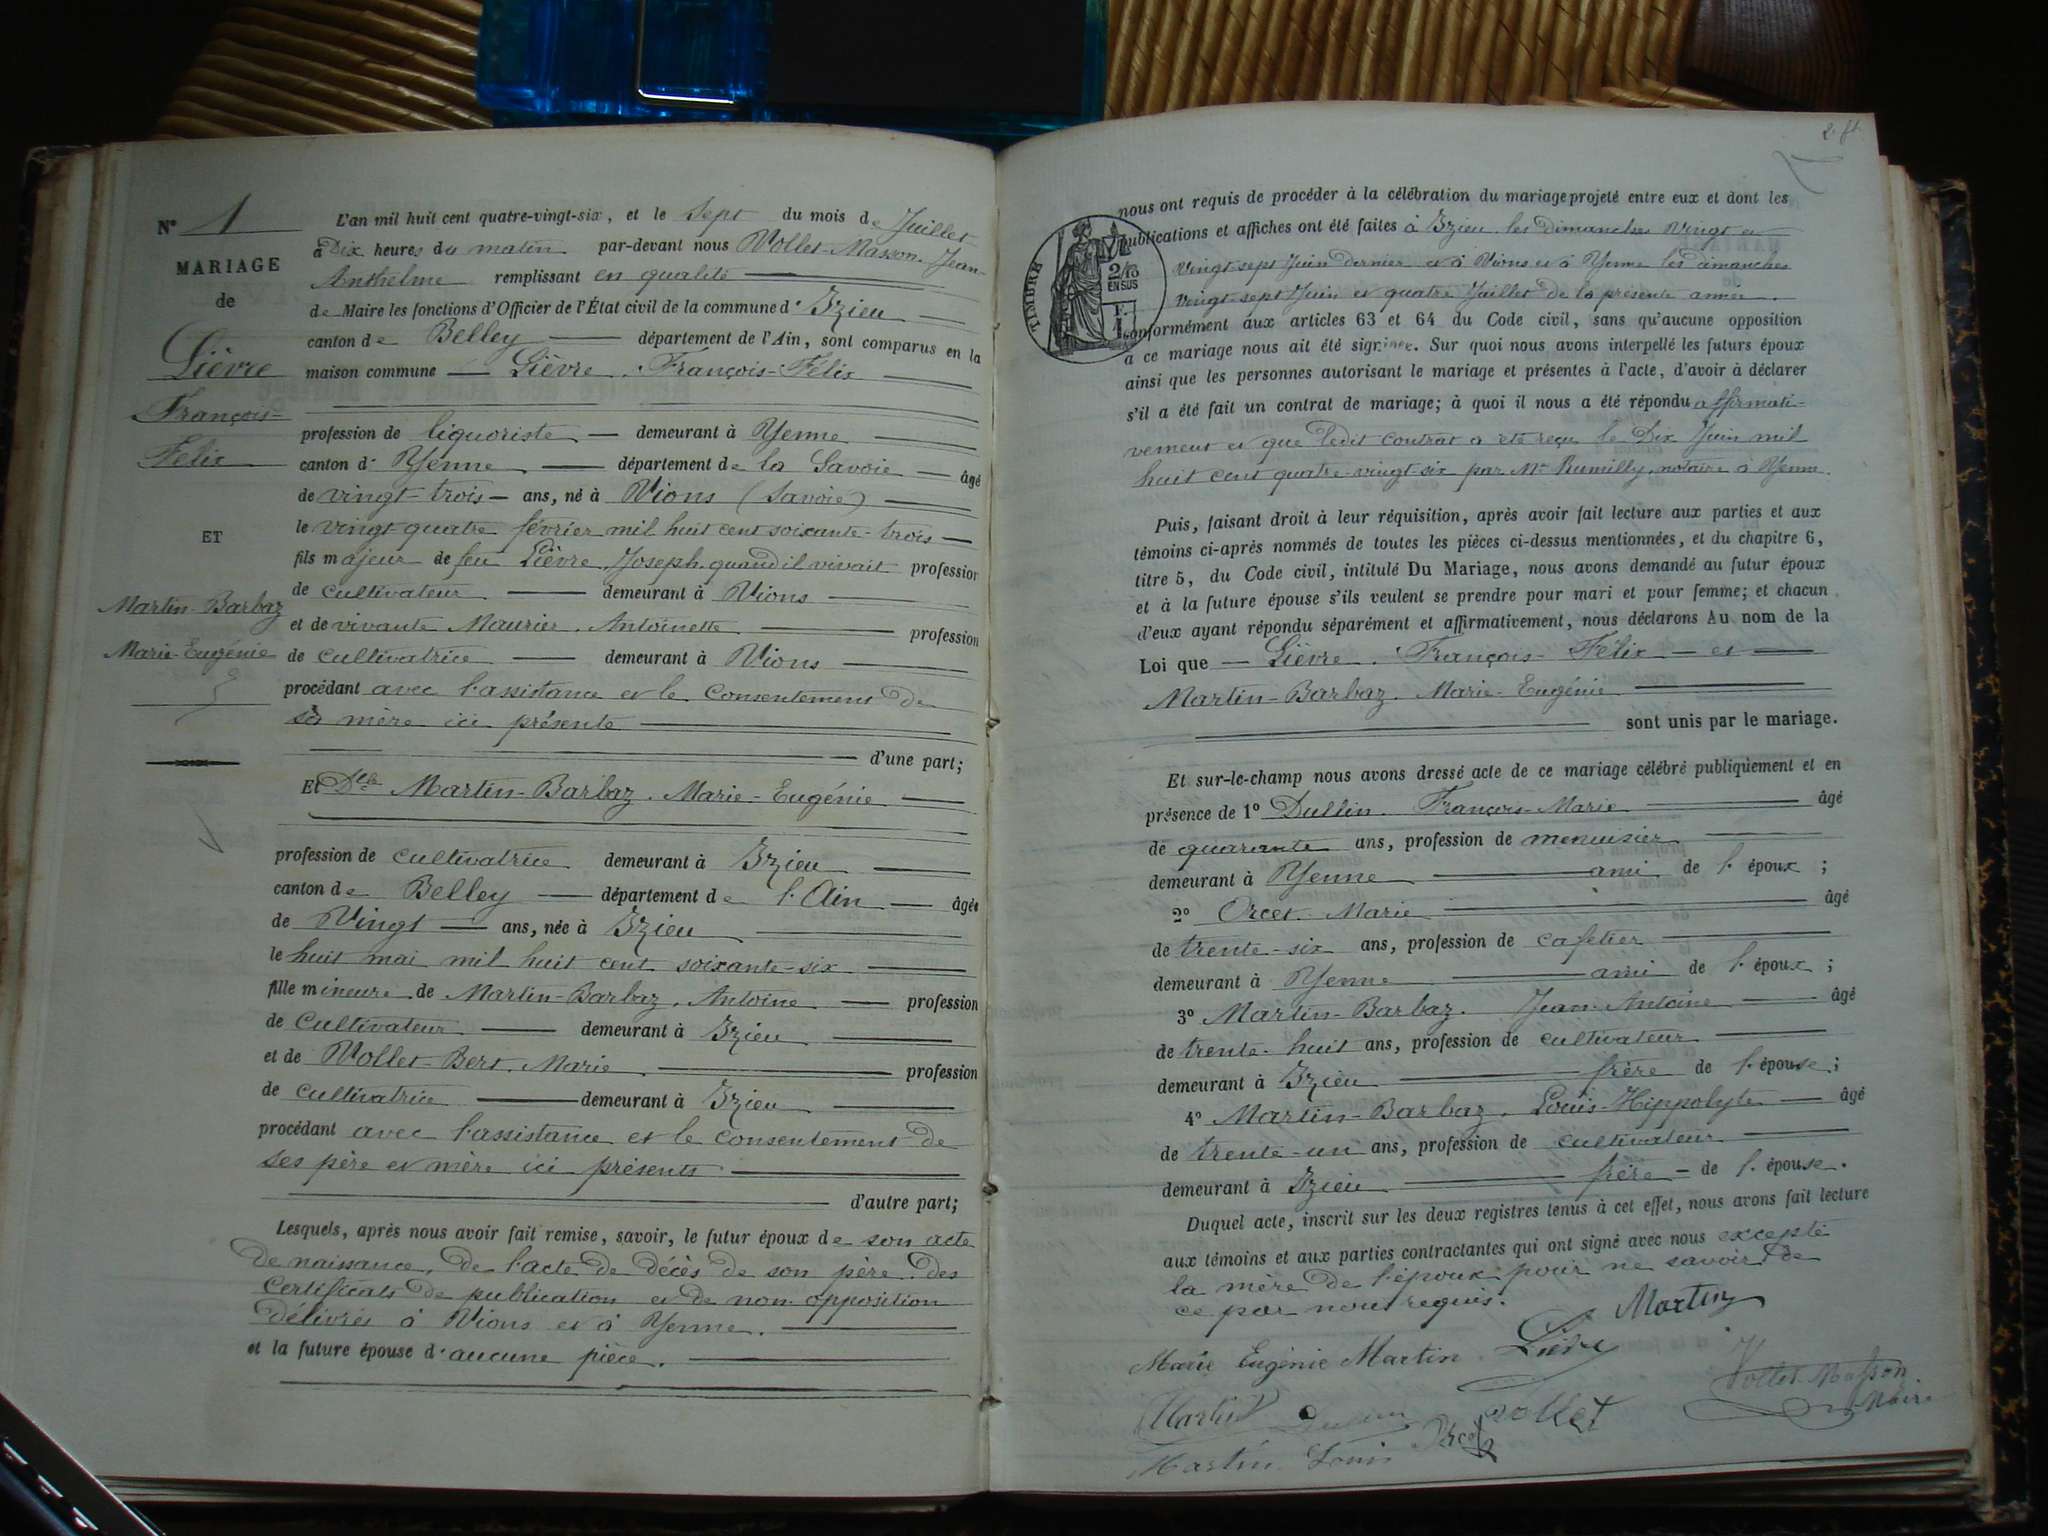 N° 1
MARIAGE
de
Lièvre
François-
Félix
ET
Martin-Barbaz
Marie-Eugénie
L'an mil huit cent quatre-vingt-six, et le Sept du mois de Juillet
à Dix heures du matin par-devant nous Vollet-Masson, Jean-
Anthelme remplissant en qualité
de Maire les fonctions d'Officier de l'État civil de la commune d'Izieu
canton de Belley département de l'Ain, sont comparus en la
maison commune Lièvre, François-Félix
profession de liquoriste demeurant à Yenne
canton d' Yenne département de la Savoie âgé
de vingt-trois ans, né à Vions (Savoie)
le vingt quatre février mil huit cent soixante-trois
fils majeur de feu Lièvre, Joseph, quand il vivait profession
de cultivateur demeurant à Vions
et de vivante Maurier, Antoinette profession
de cultivatrice demeurant à Vions
procédant avec l'assistance et le consentement de
sa mère ici présente
d'une part;
Et Delle Martin-Barbaz, Marie-Eugénie
profession de cultivatrice demeurant à Izieu
canton de Belley département de l'Ain âgée
de Vingt ans, née à Izieu
le huit mai mil huit cent soixante-six
fille mineure de Martin-Barbaz, Antoine profession
de cultivateur demeurant à Izieu
et de Vollet-Bert, Marie profession
de cultivatrice demeurant à Izieu
procédant avec l'assistance et le consentement de
ses père et mère ici présents
d'autre part;
Lesquels, après nous avoir fait remise, savoir, le futur époux de son acte
de naissance, de l'acte de décès de son père, des
certificats de publication et de non opposition
délivrés à Vions et à Yenne.
et la future épouse d'aucune pièce.
nous ont requis de procéder à la célébration du mariage projeté entre eux et dont les
publications et affiches ont été faites à Izieu les dimanches vingt et
vingt-sept Juin dernier et à Vions et à Yenne les dimanches
vingt-sept Juin et quatre Juillet de la présente année.
TIMBRE
2/10
EN SUS
F.
1
conformément aux articles 63 et 64 du Code civil, sans qu'aucune opposition
à ce mariage nous ait été signifiée. Sur quoi nous avons interpellé les futurs époux
ainsi que les personnes autorisant le mariage et présentes à l'acte, d'avoir à déclarer
s'il a été fait un contrat de mariage; à quoi il nous a été répondu affirmati-
vement et que ledit contrat a été reçu le Dix Juin mil
huit cent quatre-vingt-six par Me Rumilly, notaire à Yenne.
Puis, faisant droit à leur réquisition, après avoir fait lecture aux parties et aux
témoins ci-après nommés de toutes les pièces ci-dessus mentionnées, et du chapitre 6,
titre 5, du Code civil, intitulé Du Mariage, nous avons demandé au futur époux
et à la future épouse s'ils veulent se prendre pour mari et pour femme; et chacun
d'eux ayant répondu séparément et affirmativement, nous déclarons Au nom de la
Loi que Lièvre, François-Félix et
Martin-Barbaz, Marie-Eugénie
sont unis par le mariage.
Et sur-le-champ nous avons dressé acte de ce mariage célébré publiquement et en
présence de 1° Dullin, François-Marie âgé
de quarante ans, profession de menuisier
demeurant à Yenne ami de l'époux;
2° Orcet, Marie âgé
de trente-six ans, profession de cafetier
demeurant à Yenne ami de l'époux;
3° Martin-Barbaz, Jean-Antoine âgé
de trente-huit ans, profession de cultivateur
demeurant à Izieu frère de l'épouse;
4° Martin-Barbaz, Louis-Hippolyte âgé
de trente-un ans, profession de cultivateur
demeurant à Izieu frère de l'épouse.
Duquel acte, inscrit sur les deux registres tenus à cet effet, nous avons fait lecture
aux témoins et aux parties contractantes qui ont signé avec nous excepté
la mère de l'époux pour ne savoir de
ce par nous requis.
Martin
Marie Eugénie Martin Lièvre
Vollet-Masson
Maire
Martin Dullin Orcet Vollet
Martin Louis